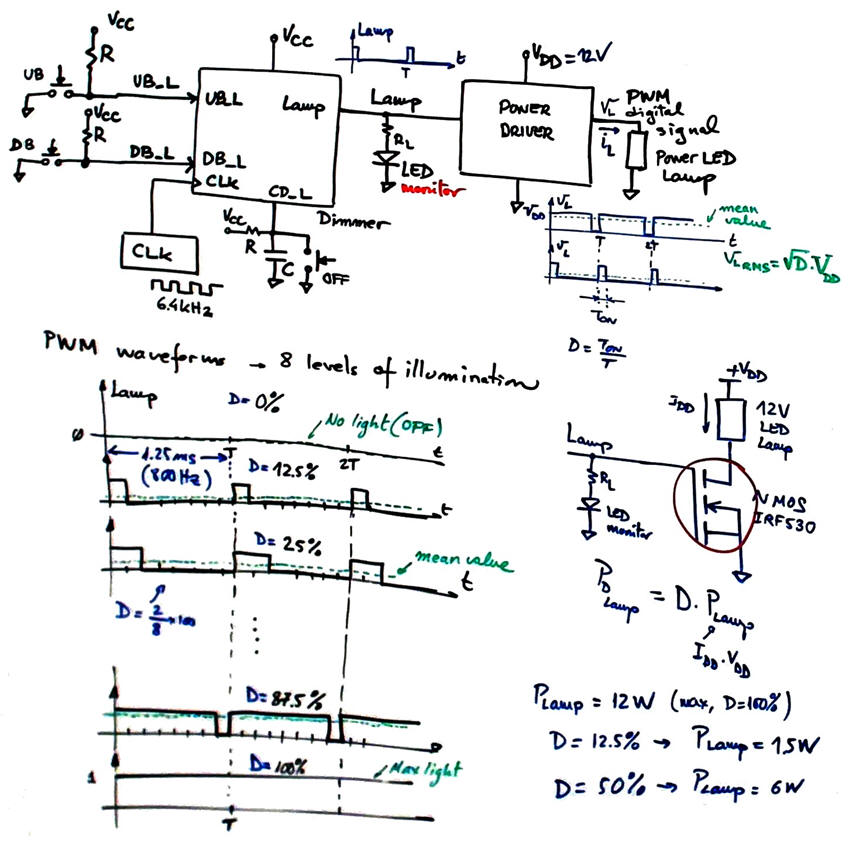 VCC
R
UB
UB_L
VCC
R
DB
DB_L
UB_L
DB_L
CLK
Lamp
CD_L
VCC
Dimmer
CLK
6.4kHz
VCC
R
C
OFF
Lamp
T
t
Lamp
RL
LED
monitor
POWER
DRIVER
VDD = 12V
VL
iL
PWM
digital
signal
Power LED
Lamp
VDD
VL
mean
value
T
2T
t
VL
VLRMS = √D·VDD
TON
D = TON/T
PWM waveforms → 8 levels of illumination
Lamp
D= 0%
No light (OFF)
0
1.25ms
(800Hz)
T
2T
t
D= 12.5%
t
D= 25%
mean value
t
D = 2/8 ×100
D= 87.5%
D= 100%
Max light
1
T
+VDD
IDD
12V
LED
Lamp
Lamp
RL
LED
monitor
NMOS
IRF530
PD Lamp = D. PLamp
IDD.VDD
PLamp = 12W (max, D=100%)
D = 12.5% → PLamp = 1,5W
D = 50% → PLamp = 6W